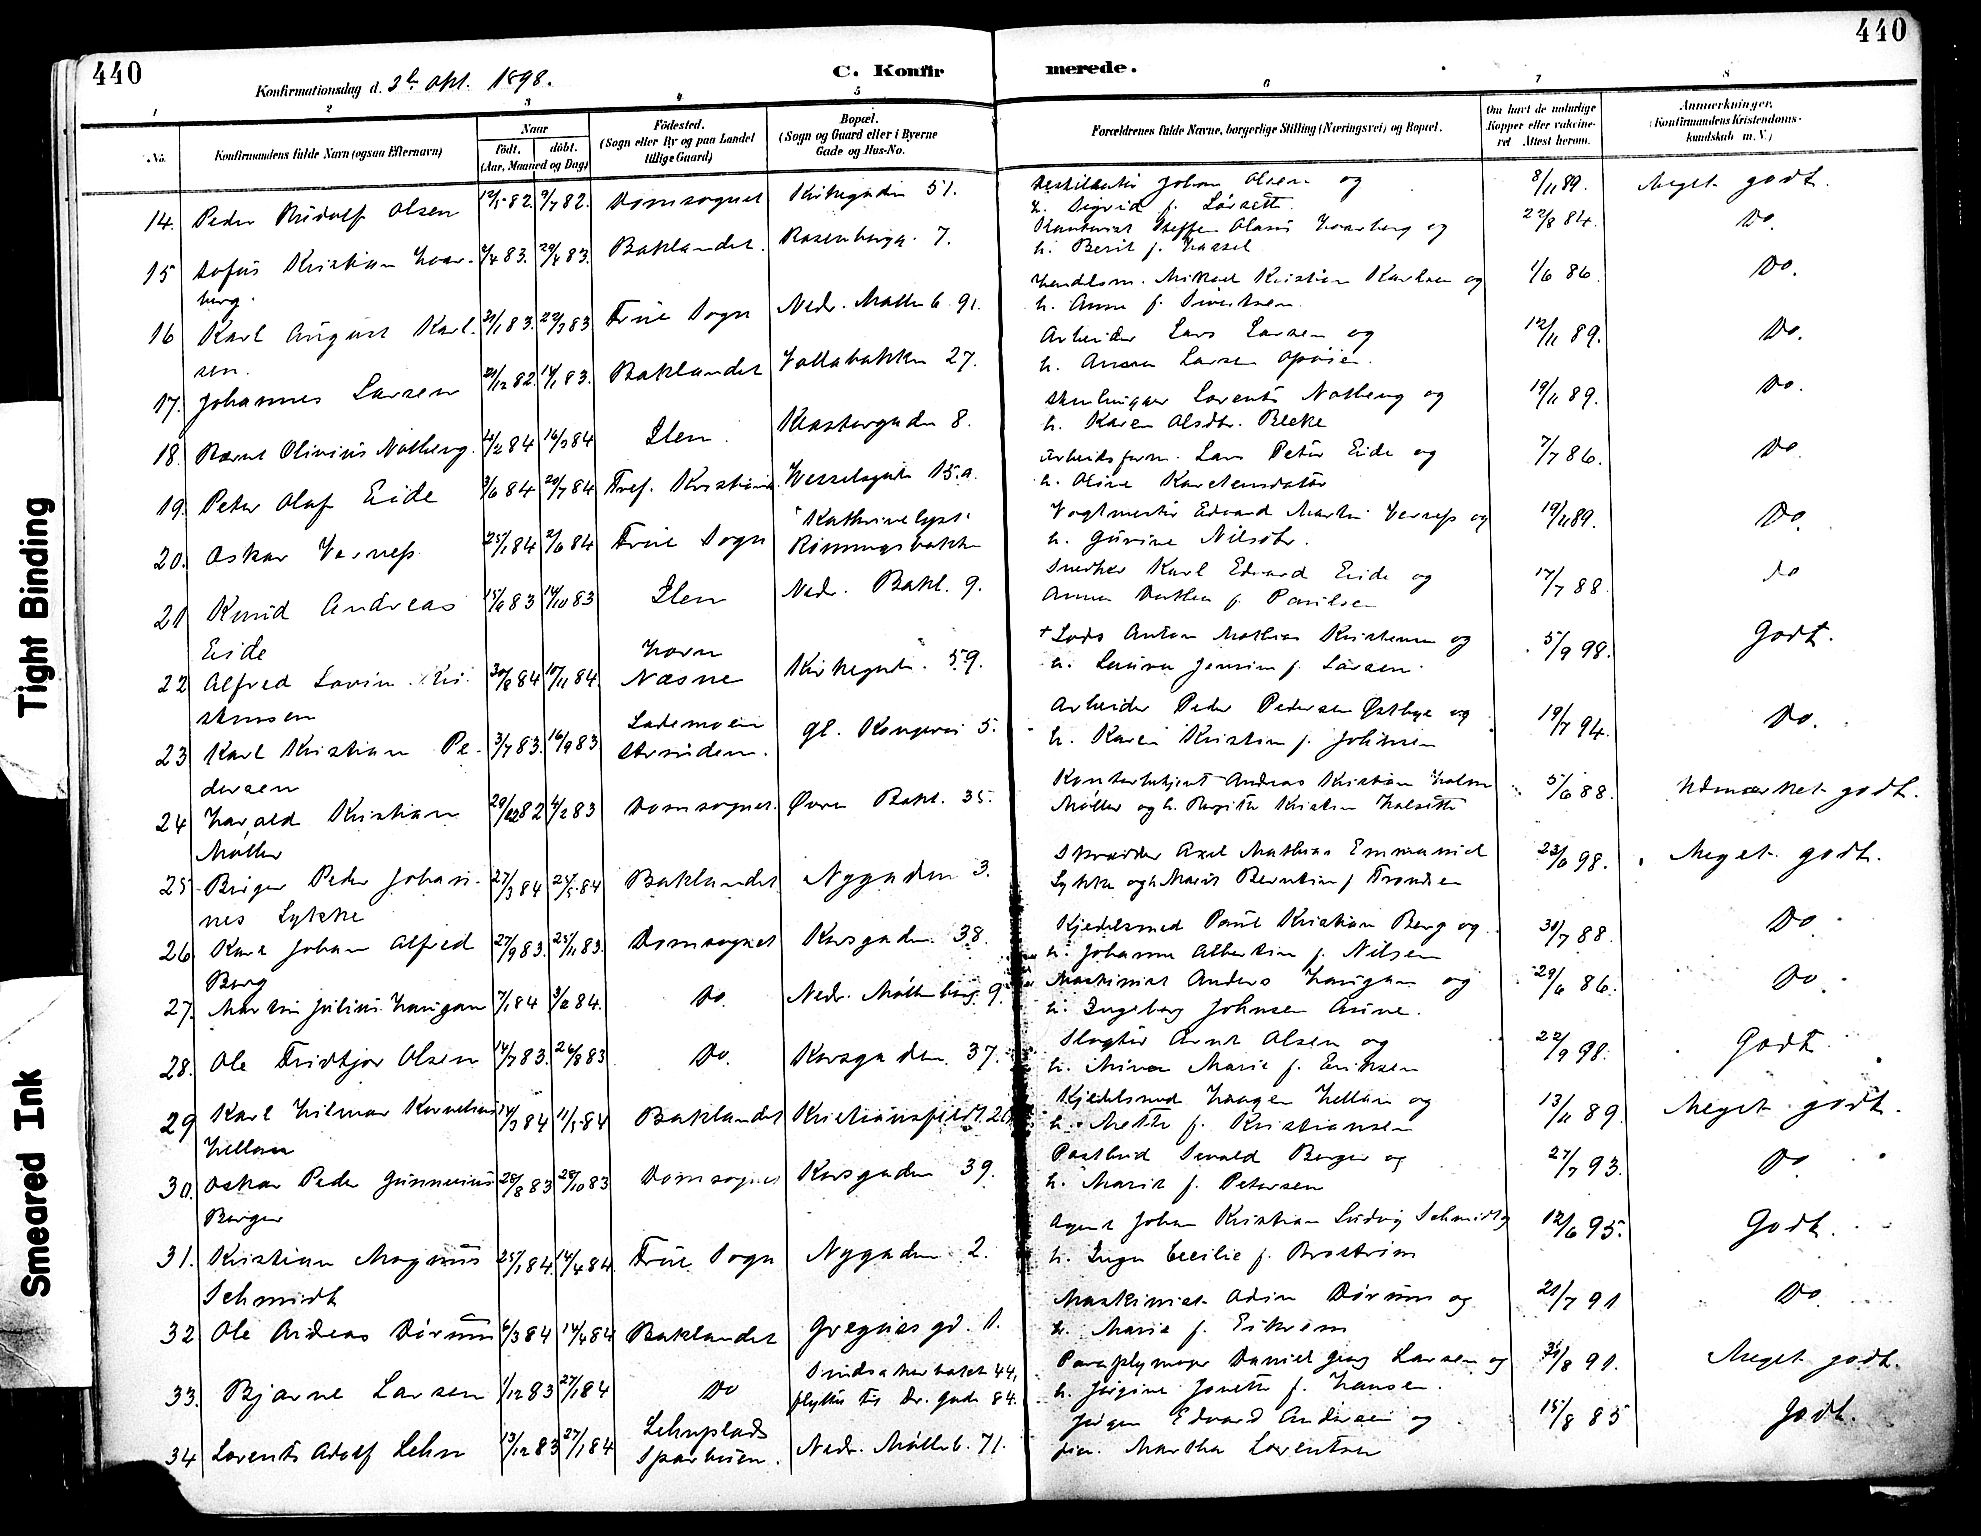 440
440
Konfirmationsdag d. 2den Okt. 1898.
C. Konfirmerede.
1 2 3 4 5 6 7 8
No.
Konfirmandens fulde Navn (ogsaa Efternavn)
Naar
Født. døbt.
(Aar, Maaned og Dag)
Fødested.
(Sogn eller By og paa Landet
tillige Gaard)
Bopæl.
(Sogn og Gaard eller i Byerne
Gade og Hus-No.
Forældrenes fulde Navne, borgerlige Stilling (Næringsvei) og Bopæl.
Om havt de naturlige
Kopper eller vakcine-
ret Attest herom.
Anmærkninger,
(Konfirmandens Kristendoms-
kundskab m. V.)
14. Peder Rudolf Olsen 12/5 82. 9/7 82. Domsognet Kirkegaden 51. Johan Olsen og 8/11 89. Meget godt.
h. Sigrid f. Lorsett
15 Sofus Kristian Hoar- 2/4 83. 29/4 83. Baklandet. Rosenborgg. 7. Steffen Olaus Hoarberg og 22/8 84. Do.
berg. h. Berit f. Hassel
16 Karl August Karl- 31/1 83. 22/3 83 Frue Sogn Nedr. Møllenb. 91. Handlsm. Mikael Kristian Karlsen og 1/6 86. Do.
sen. h. Anna f. Sivertsen.
17. Johannes Larsen 21/12 82. 14/1 83. Baklandet Vollabakken 27. Arbeider Lars Larsen og 12/11 89. Do.
h. Anna Larsen Opøien.
18. Bernt Olinius Notberg. 14/2 84 16/3 84 Ilen. Klostergaden 8. Lorents Notberg og 19/11 89. Do.
h. Karen Olsdtr. Bleke
19. Peter Olaf Eide 3/6 84 20/7 84 Tref. Kristiania Wesselsgade 15.a. Arbeidsform. Lars Peter Eide og 7/7 86. Do
h. Oline Karstensdatter
20. Oskar Verness 25/1 84 2/6 84 Frue Sogn "Kathrinelyst" Vogtmester Edvard Martin Verness og 19/11 89. Do
Rønningsbakken h. Gurine Nilsdtr.
21 Knud Andreas 15/6 83 14/10 83 Ilen Nedr. Bakl. 9. Snedker Karl Edvard Eide og 17/7 88. do
Eide Anna Dorthea f. Paulsen
22 Alfred Lorin Kri- 30/8 84 10/11 84. Havn Kirkegade. 59. + Lods Anton Mathias Kristensen og 5/9 98. Godt.
stensen Næsne h. Laura Jensine f. Larsen.
23 Karl Kristian Pe- 3/7 83. 16/9 83 Lademoen gl. Kongevei 5. Arbeider Peder Pedersen Østbye og 19/7 94. Do.
dersen Strinden. h. Karen Kristine f. Johnsen
24 Harald Kristian 29/12 82 4/2 83 Domsognet. Øvre Bakl. 35. Kontorbetjent Andreas Kristian Holm 5/6 88. Udmærket godt.
Møller Møller og h. Birgitte Kristine Holsett
25 Birger Peder Johan- 27/3 84 25/5 84 Baklandet Nygaden 3. Skrædder Axel Mathias Emmanuel 23/6 98. Meget godt.
nes Lykke Lykke og h. Marit Berntine f. Trondsen
26 Karl Johan Alfred 27/9 83. 25/11 83. Domsognet Korsgaden 38. Kjedelsmed Paul Kristian Berg og 30/7 88. Do
Berg h. Johanna Albertine f. Nilsen
27. Martin Julius Haugan 7/1 84 3/2 84. Do. Nedr. Møllenberg. 9. Maskinist Anders Haugan og 29/6 86. Do.
h. Ingeborg Johnsen Aune.
28. Ole Fridtjov Olsen 14/7 83. 26/8 83 Do. Korsgaden. 37. Slagter Arnt Olsen og 22/9 98. Godt
h. Mina Marie f. Eriksen
29 Karl Hilmar Kornelius 14/3 84 11/5 84 Baklandet Kristiansfeldt. Kjedelsmed Haagen Hellan og 13/11 89. Meget godt.
Hellan h. Mette f. Kristiansen
30. Oskar Peder Gunnerius 28/8 83 28/10 83 Domsognet Korsgaden 39. Postbud Sivald Berger og 27/7 93. Do
Berger h. Marit f. Petersen
31. Kristian Magnus 25/1 84. 14/4 84 Frue Sogn Nygaden 2. Agent Johan Kristian Ludvig Schmidt og 12/6 95. Godt.
Schmidt h. Inga Cecilie f. Brostrøm
32 Ole Andreas Dørum 6/3 84 14/4 84 Baklandet Gregusgd. 1. Maskinist Odin Dørum og 21/7 91 Do
h. Marie f. Eikrem
33. Bjarne Larsen 1/12 83 27/1 84 Do bakken 44, Paraplymager Daniel Georg Larsen og 31/8 91. Meget godt.
flyttet til Dr. Gade 84. h. Jørgine Jonette f. Hansen.
34 Lorents Adolf Lehn 13/12 83 27/1 84 Lehnplads Nedr. Møllenb. 71. Jørgen Edvard Andersen og 15/8 85 Godt.
Sparbuen. Martha Lorentsen
Tight Binding
Smeared Ink